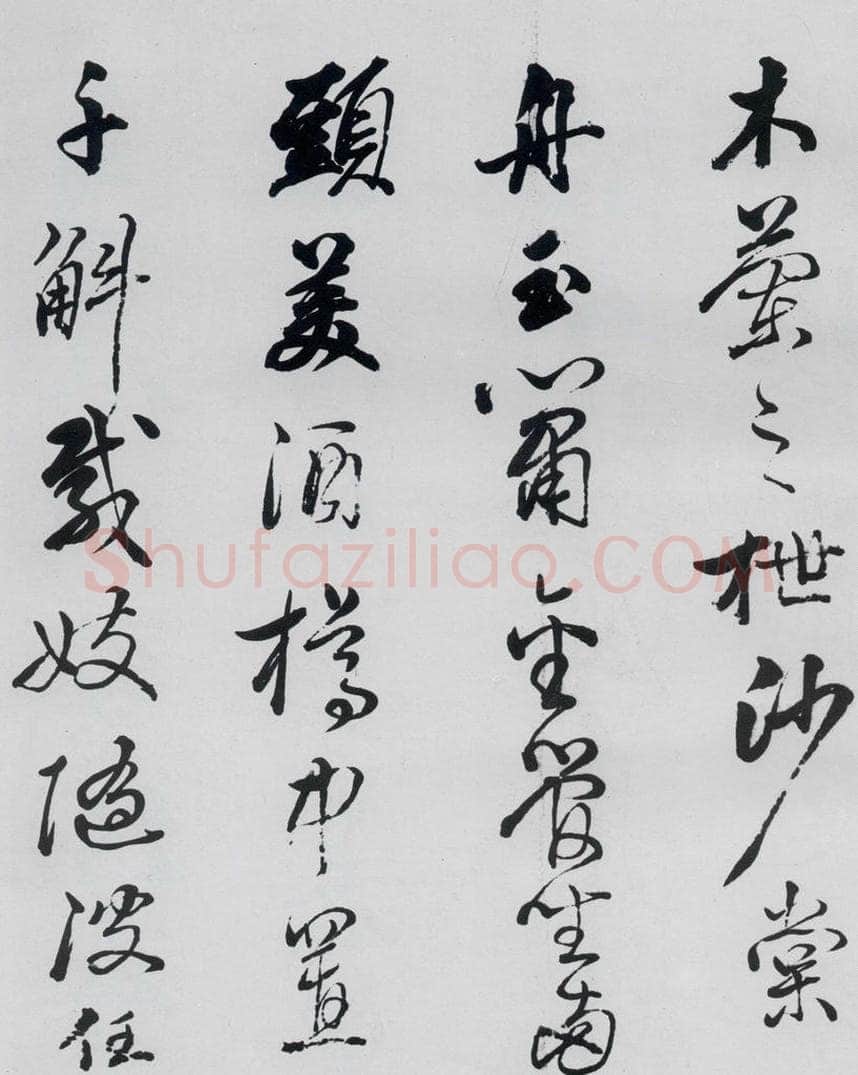 木蘭之枻沙棠
舟玉簫金管坐兩
頭美酒樽中置
千斛載妓隨波任
Shufaziliao.COM